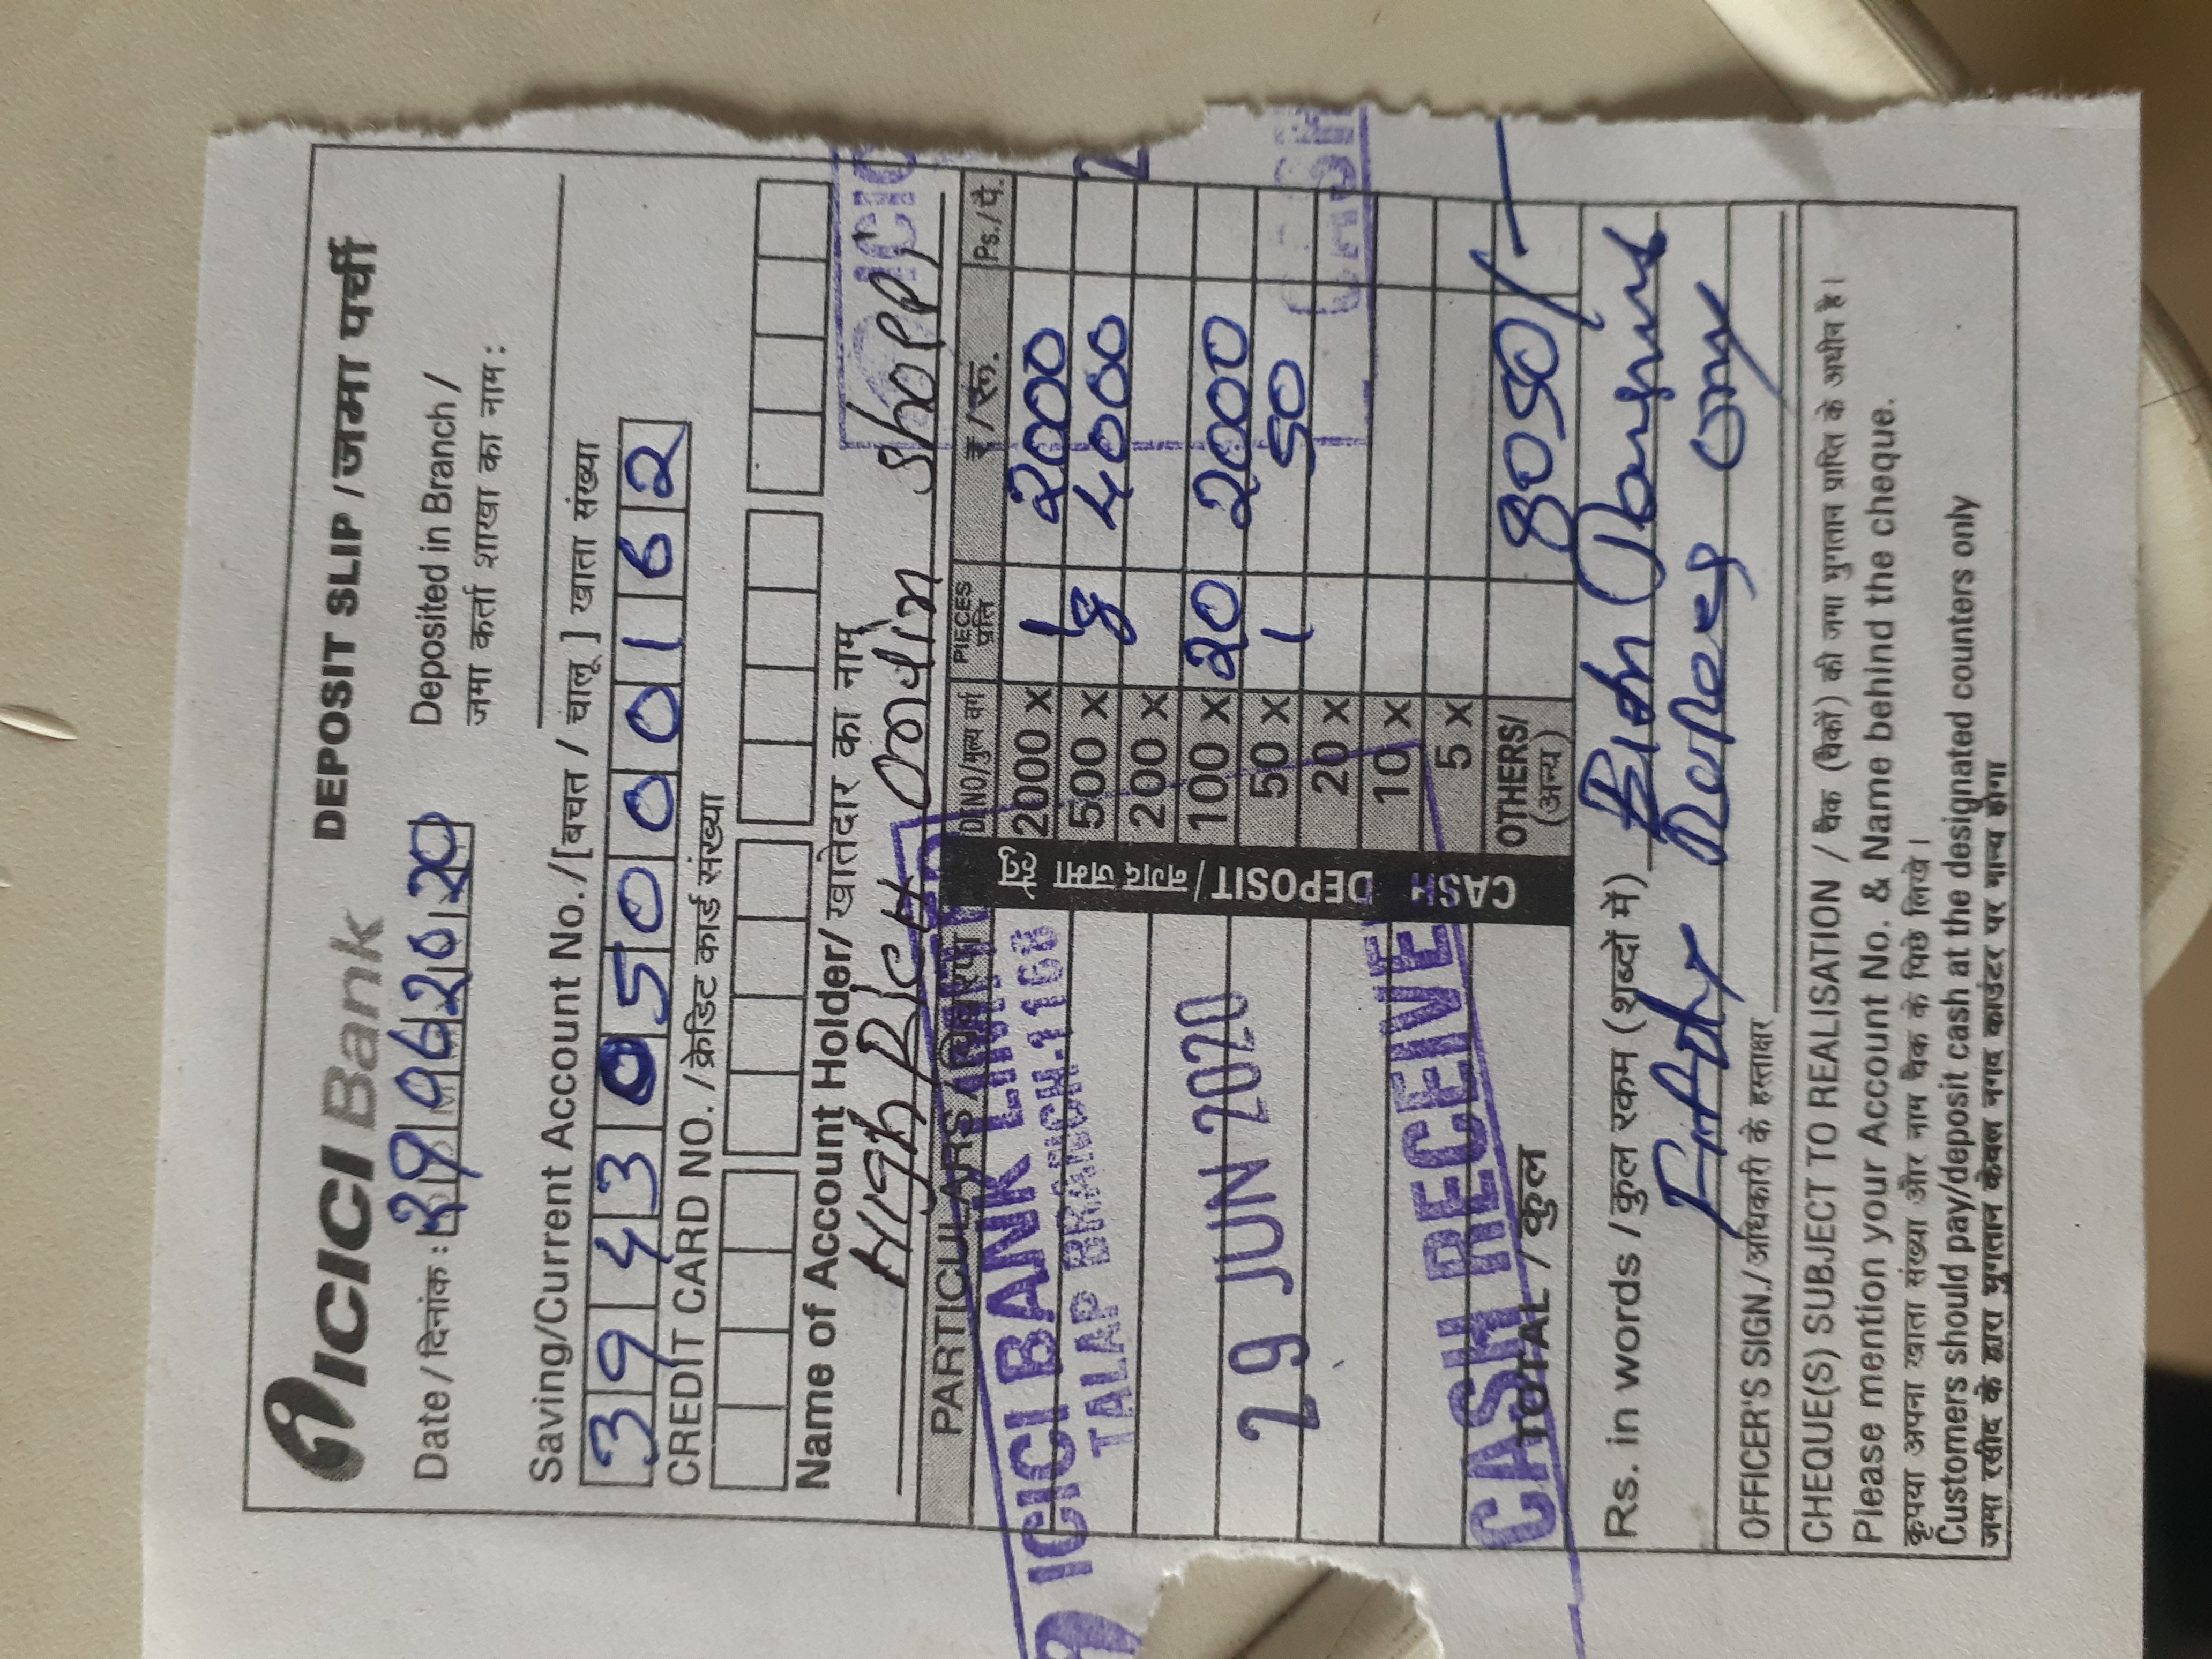 ICICI Bank DEPOSIT SLIP / जमा पर्ची
Date / दिनांक : 29062020
Deposited in Branch /
जमा कर्ता शाखा का नाम :
Saving/Current Account No. / [बचत / चालू ] खाता संख्या
394305000162
CREDIT CARD NO. / क्रेडिट कार्ड संख्या
Name of Account Holder/ खातेदार का नाम
High Rich Onlin Shoppi
PARTICULARS / विवरण
CASH DEPOSIT / नगद जमा हेतु
DENO/मुल्य वर्ग PIECES प्रति ₹ / रू. Ps. / पै.
2000 x 1 2000
500 x 8 4000
200 x
100 x 20 2000
50 x 1 50
20 x
10 x
5 x
OTHERS/ (अन्य) 8050/-
TOTAL / कुल
ICICI BANK LIMITED
TALAP BRANCH-1168
29 JUN 2020
CASH RECEIVE
ICIC
2
CASH
Rs. in words / कुल रकम (शब्दों में)
Rupees only
OFFICER'S SIGN./ अधिकारी के हस्ताक्षर
CHEQUE(S) SUBJECT TO REALISATION / चैक (चैकों) की जमा भुगतान प्राप्ति के अधीन है।
Please mention your Account No. & Name behind the cheque.
कृपया अपना खाता संख्या और नाम चैक के पिछे लिखे।
Customers should pay/deposit cash at the designated counters only
जमा रसीद के द्वारा भुगतान केवल नगद काउंटर पर मान्य होगा